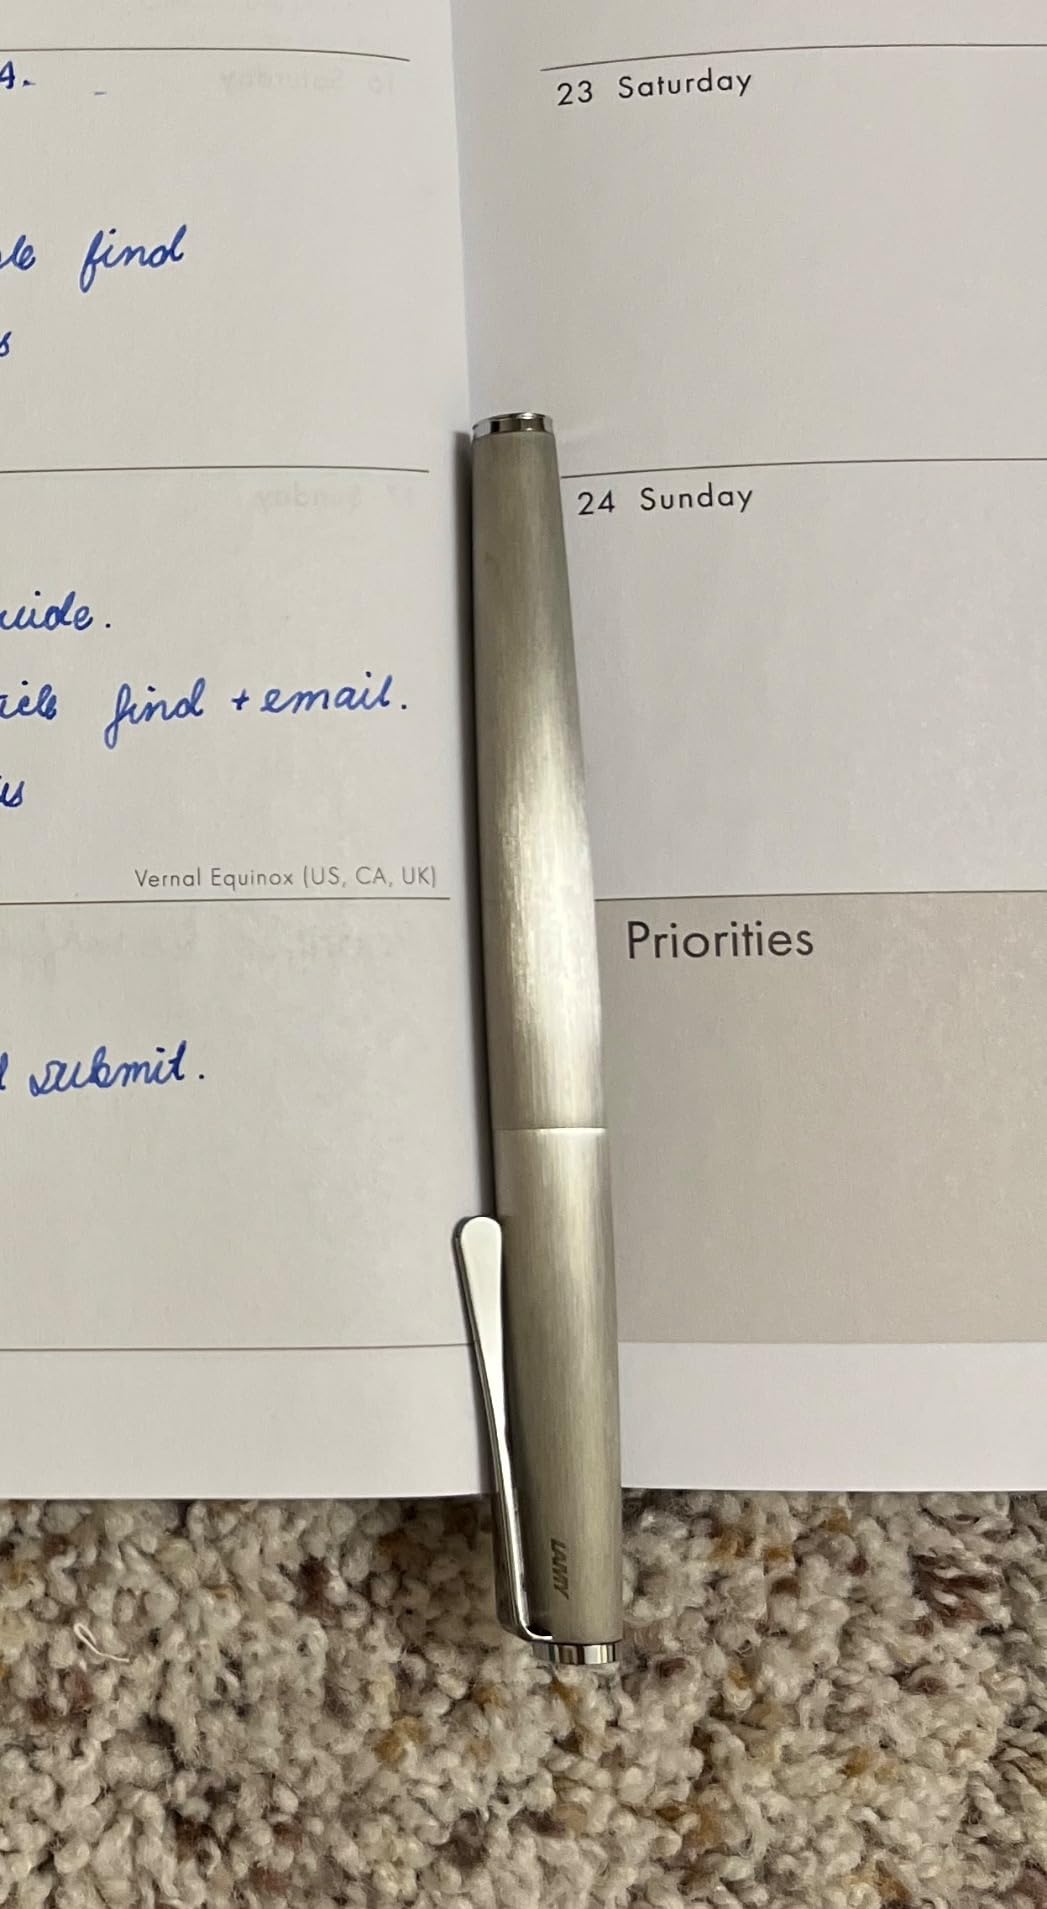 4.
find
find + email.
Vernal Equinox (US, CA, UK)
submit.
23 Saturday
24 Sunday
Priorities
LAMY